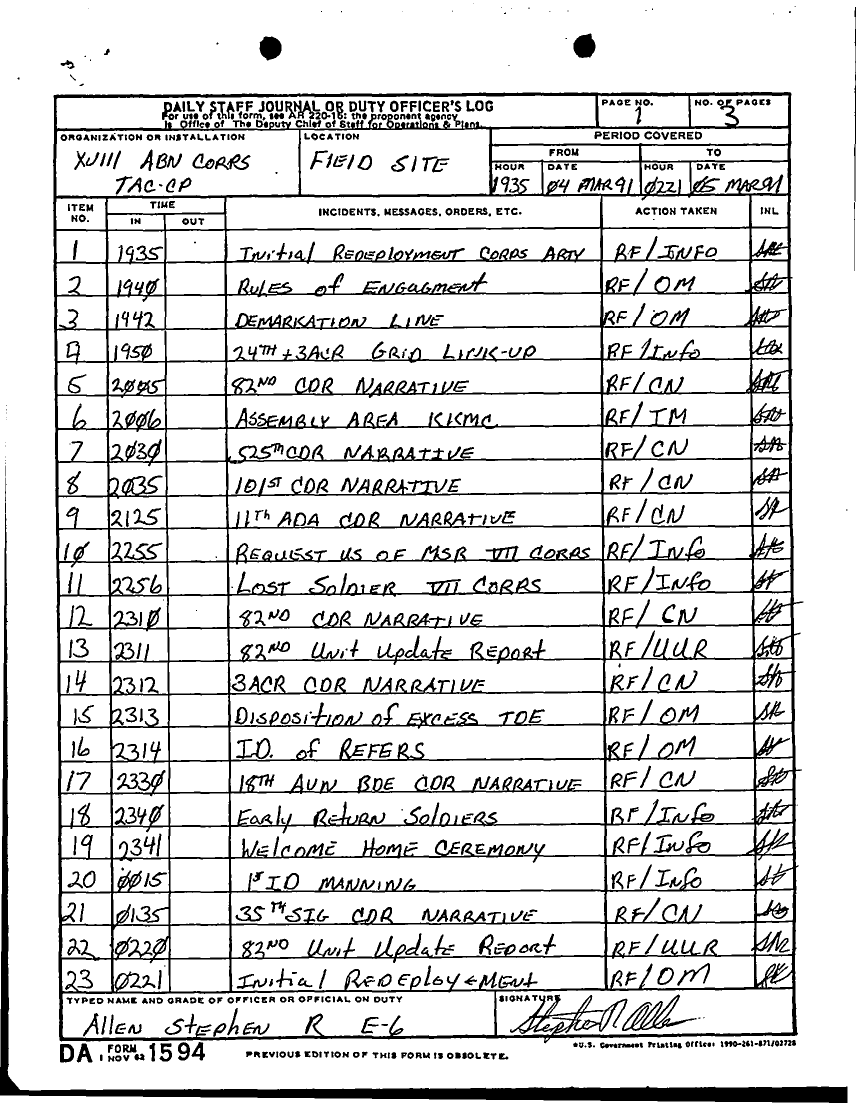 DAILY STAFF JOURNAL OR DUTY OFFICER'S LOG
For use of this form, see AR 220-15; the proponent agency
is Office of The Deputy Chief of Staff for Operations & Plans.
PAGE NO.
1
NO. OF PAGES
3
ORGANIZATION OR INSTALLATION
XVIII ABN CORPS
TAC-CP
LOCATION
FIELD SITE
PERIOD COVERED
FROM TO
HOUR DATE HOUR DATE
1935 04 MAR 91 0221 05 MAR 91
ITEM NO. TIME INCIDENTS, MESSAGES, ORDERS, ETC. ACTION TAKEN INL
IN OUT
1 1935 Initial REDEPLOYMENT CORPS ARTY RF/INFO
2 1940 RULES of ENGAGMENT RF/OM
3 1942 DEMARKATION LINE RF/OM
4 1950 24TH + 3ACR GRID LINK-UP RF/Info
5 2005 82ND CDR NARRATIVE RF/CN
6 2006 ASSEMBLY AREA KKMC RF/IM
7 2030 525TH CDR NARRATIVE RF/CN
8 2035 101ST CDR NARRATIVE RF/CN
9 2125 11Th ADA CDR NARRATIVE RF/CN
10 2255 REQUEST US OF MSR VII CORPS RF/Info
11 2256 LOST SolDIER VII CORPS RF/Info
12 2310 82ND CDR NARRATIVE RF/CN
13 2311 82ND Unit Update REPORT RF/UUR
14 2312 3ACR CDR NARRATIVE RF/CN
15 2313 DISPOSITION of EXCESS TOE RF/OM
16 2314 I.D. of REFERS RF/OM
17 2330 18TH AVN BDE CDR NARRATIVE RF/CN
18 2340 EARly RETURN SolDIERS RF/Info
19 2341 WElCOME HOME CEREMONY RF/Info
20 0015 1ST ID MANNING RF/Info
21 0135 35TH SIG CDR NARRATIVE RF/CN
22 0220 82ND Unit Update REPORT RF/UUR
23 0221 Initial REDEployEMENT RF/OM
TYPED NAME AND GRADE OF OFFICER OR OFFICIAL ON DUTY
Allen STEPHEN R E-6
SIGNATURE
Stephen R Allen
DA FORM 1 NOV 62 1594
PREVIOUS EDITION OF THIS FORM IS OBSOLETE.
*U.S. Government Printing Office: 1990-261-871/02728